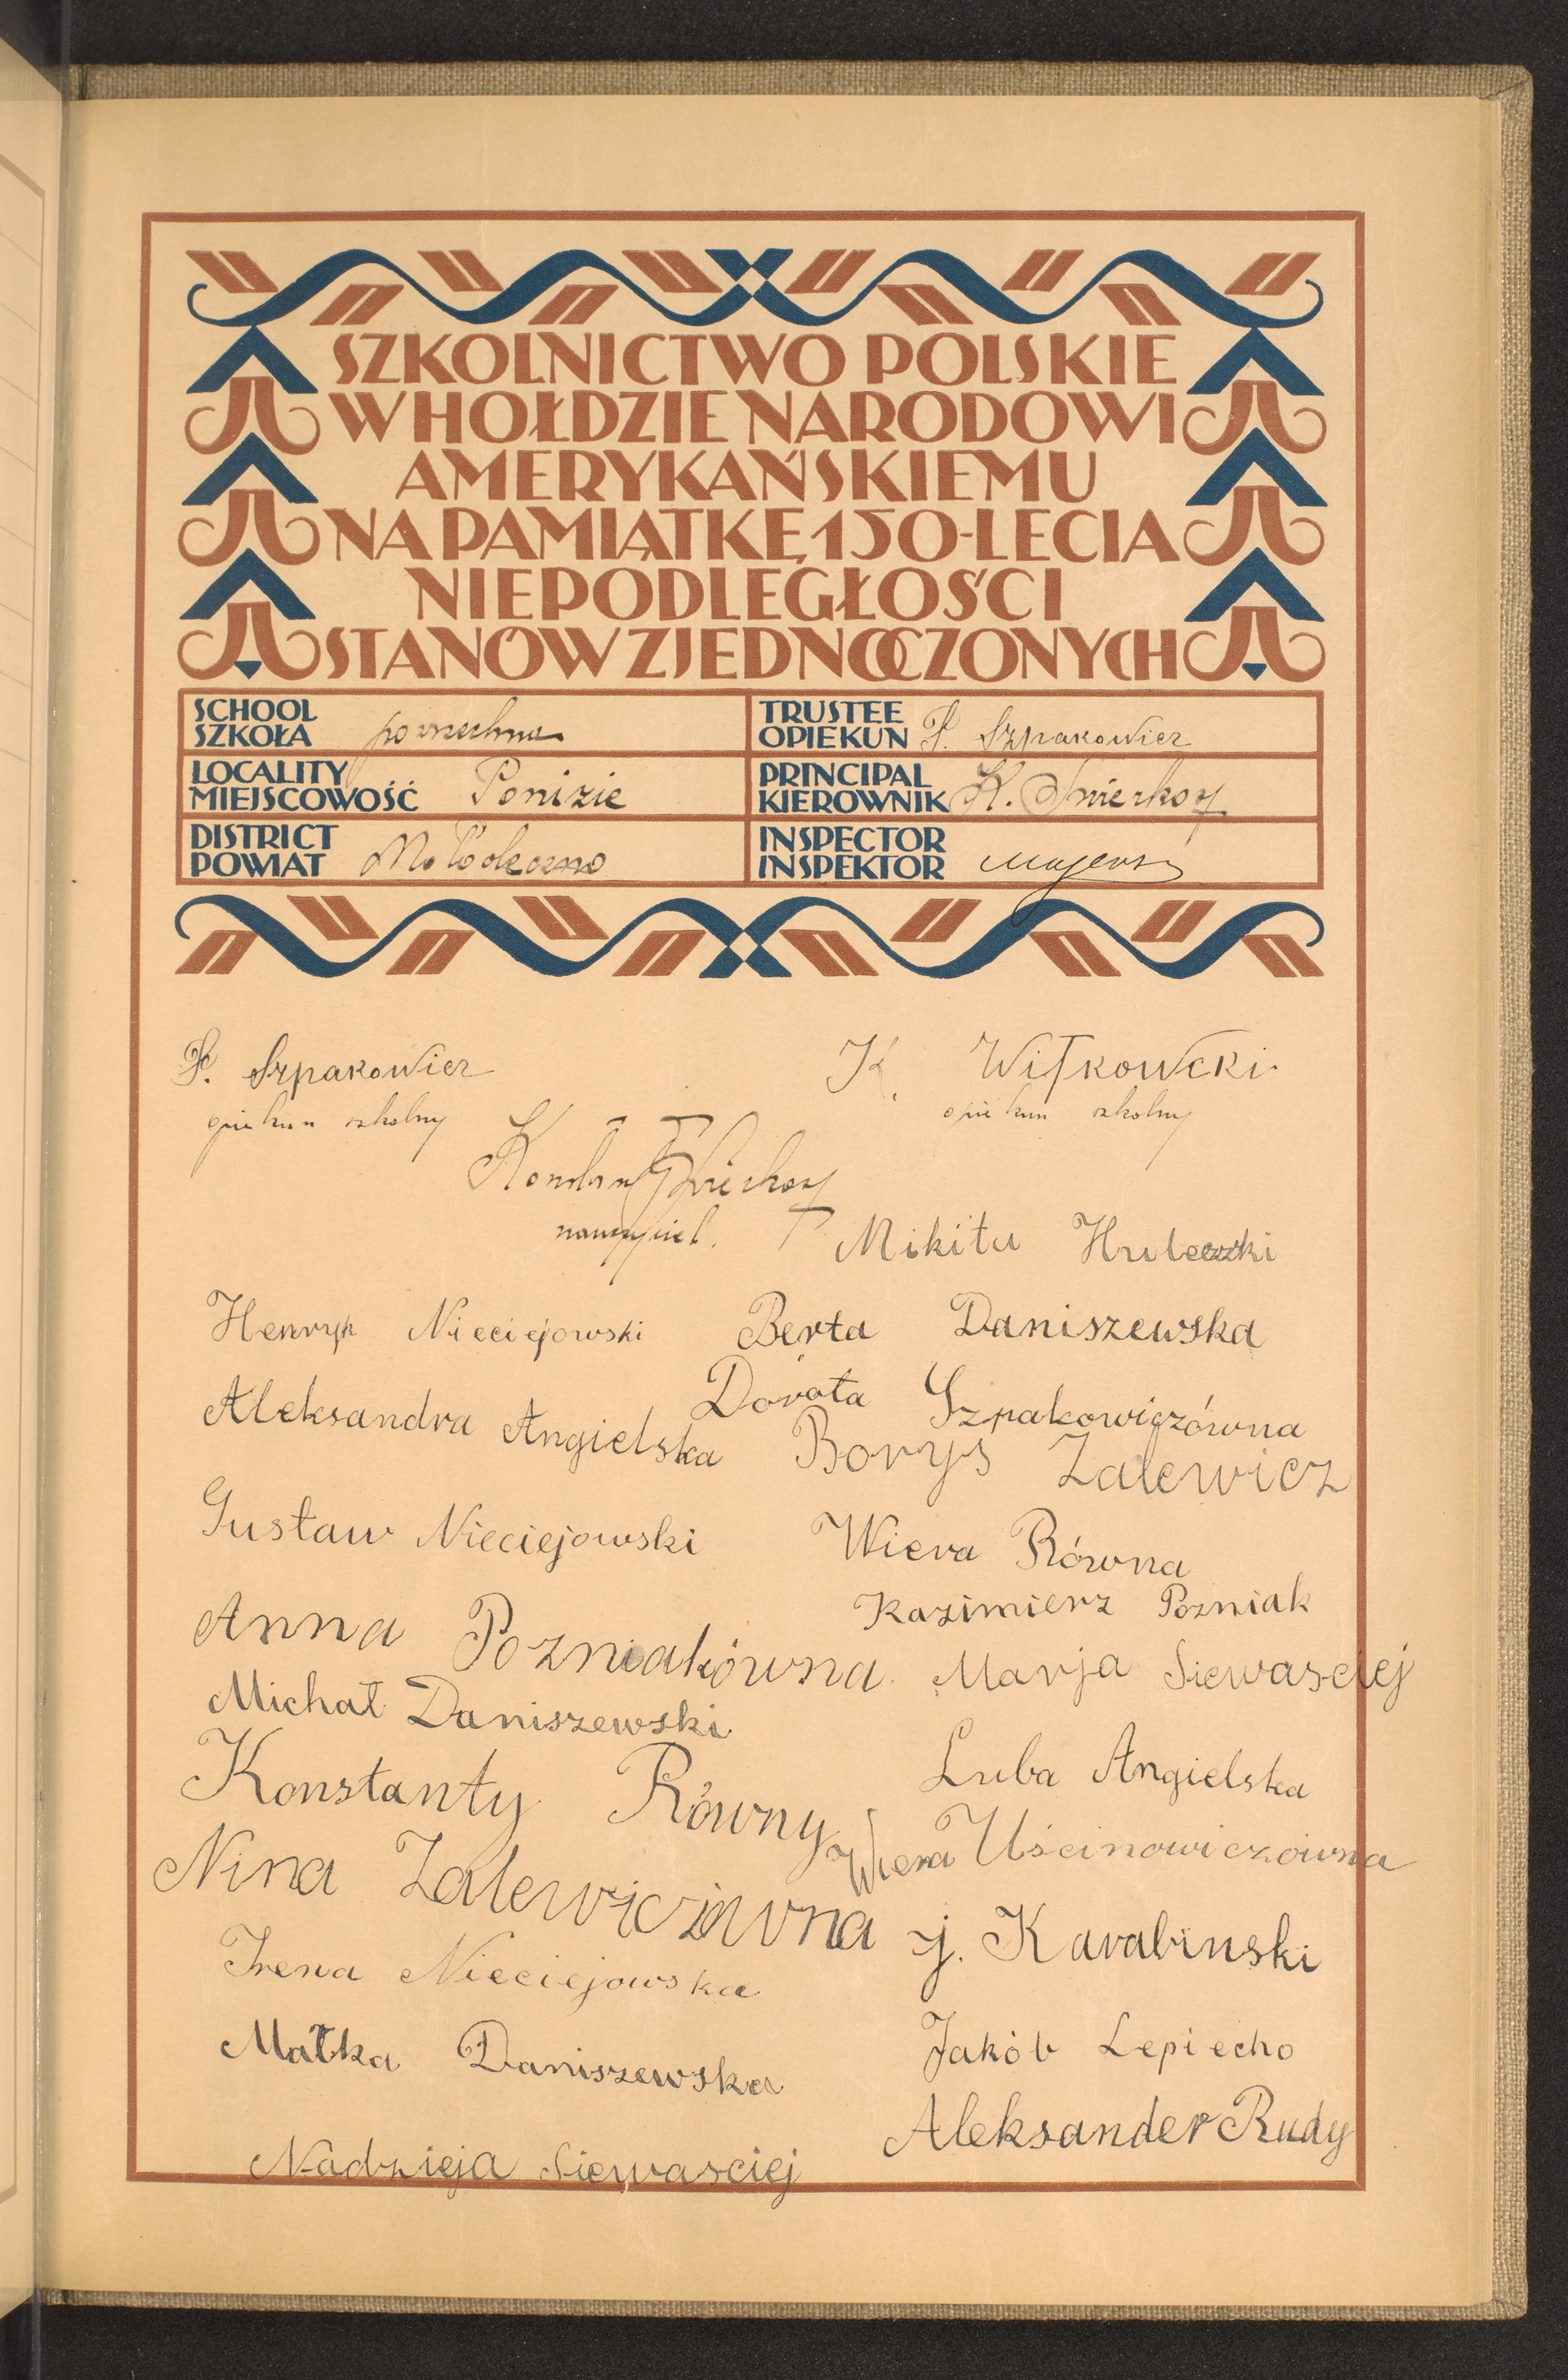 SZKOLNICTWO POLSKIE
W HOŁDZIE NARODOWI
AMERYKAŃSKIEMU
NA PAMIĄTKĘ 150-LECIA
NIEPODLEGŁOŚCI
STANÓW ZJEDNOCZONYCH
SCHOOL
SZKOŁA powszechna
TRUSTEE
OPIEKUN P. Szpakowicz
LOCALITY
MIEJSCOWOŚĆ Ponizie
PRINCIPAL
KIEROWNIK K.
DISTRICT
POWIAT Mołodeczno
INSPECTOR
INSPEKTOR
P. Szpakowicz
opiekun szkolny
K. Witkowcki
opiekun szkolny
nauczyciel.
Mikitu
Henryk Nieciejowski
Berta Daniszewska
Aleksandra Angielska
Dorota Szpakowiczówna
Borys Zalewicz
Gustaw Nieciejowski
Wiera Równa
Kazimierz Pozniak
Anna Pozniakówna
Marja Siewasciej
Michał Daniszewski
Luba Angielska
Konstanty Równy
Wiera Uścinowiczówna
Nina Zalewiczówna
J. Karabinski
Irena Nieciejowska
Jakób Lepiecho
Małka Daniszewska
Aleksander Rudy
Nadzieja Siewasciej